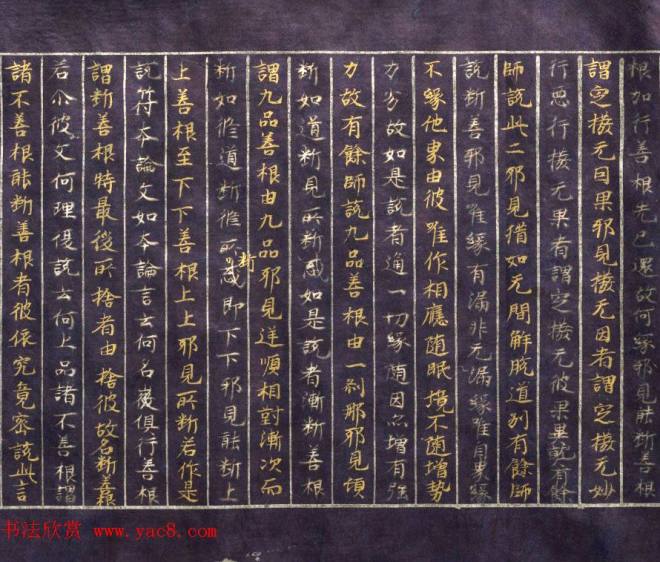 根加行善根先已還故何緣邪見能斷善根
謂定撥无因果邪見撥无因者謂定撥无妙
行惡行撥无果者謂定撥无彼果異熟有餘
師説此二邪見猶如无間解脱道別有餘師
説断善邪見唯緣有漏非无漏緣唯自界緣
不緣他界由彼唯作相應随眠境不随增勢
力劣故如是説者通一切緣随因亦增有強
力故有餘師説九品善根由一剎那邪見頓
断如道断見所断惑如是説者漸断善根
謂九品善根由九品邪見逆順相對漸次而
断如修道断修所断惑即下下邪見能断上
上善根至下下善根上上邪見所断若作是
説符本論文如本論言云何名微俱行善根
謂断善根特最後所捨者由捨彼故名断善根
若尒彼文何理復説云何上品諸不善根謂
諸不善根能断善根者彼依究竟密説此言
书法欣赏 www.yac8.com